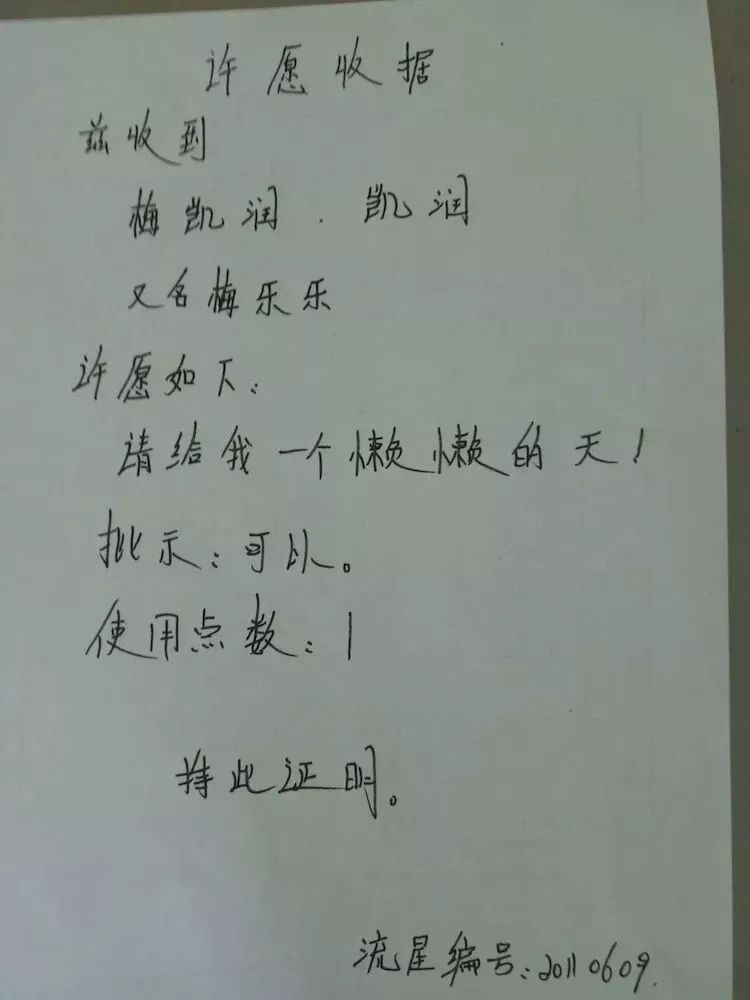 许愿收据
兹收到
梅凯润．凯润
又名梅乐乐
许愿如下：
请给我一个懒懒的天！
批示：可以。
使用点数：1
持此证明。
流星编号：20110609.